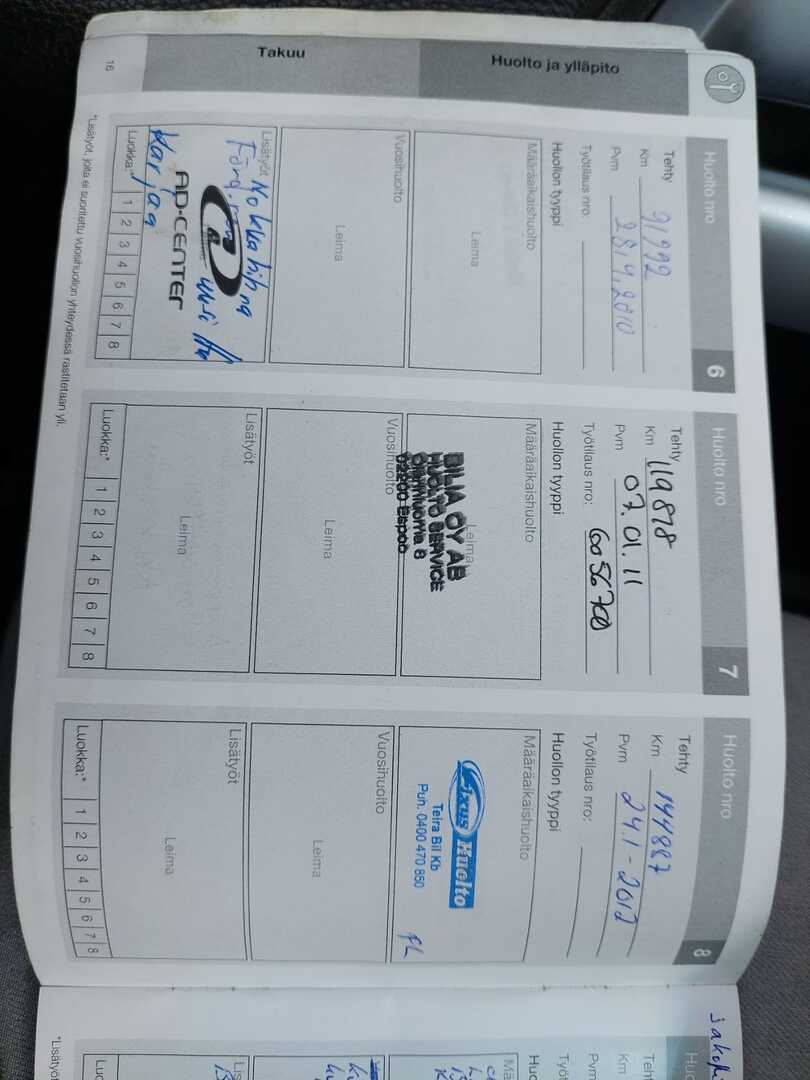 Takuu
Huolto ja ylläpito
16
Huolto nro
6
Tehty
Km 91992
Pvm 28.4.2010
Työtilaus nro:
Huollon tyyppi
Määräaikaishuolto
Leima
Vuosihuolto
Leima
Lisätyöt
Nokkahihna
uusi
AD-CENTER
Karjaa
Luokka:* 1 2 3 4 5 6 7 8
Huolto nro
7
Tehty
Km 119878
Pvm 07.01.11
Työtilaus nro: 6056700
Huollon tyyppi
Määräaikaishuolto
Leima
BILIA OY AB
HUOLTO SERVICE
02200 Espoo
Vuosihuolto
Leima
Lisätyöt
Leima
Luokka:* 1 2 3 4 5 6 7 8
Huolto nro
8
Tehty
Km 144887
Pvm 24.1-2012
Työtilaus nro:
Huollon tyyppi
Määräaikaishuolto
Fixus Huolto
Teira Bil Kb
Puh. 0400 470 850
Vuosihuolto
Leima
Lisätyöt
Leima
Luokka:* 1 2 3 4 5 6 7 8
*Lisätyöt, joita ei suoritettu vuosihuollon yhteydessä rastitetaan yli.
Km
Pvm